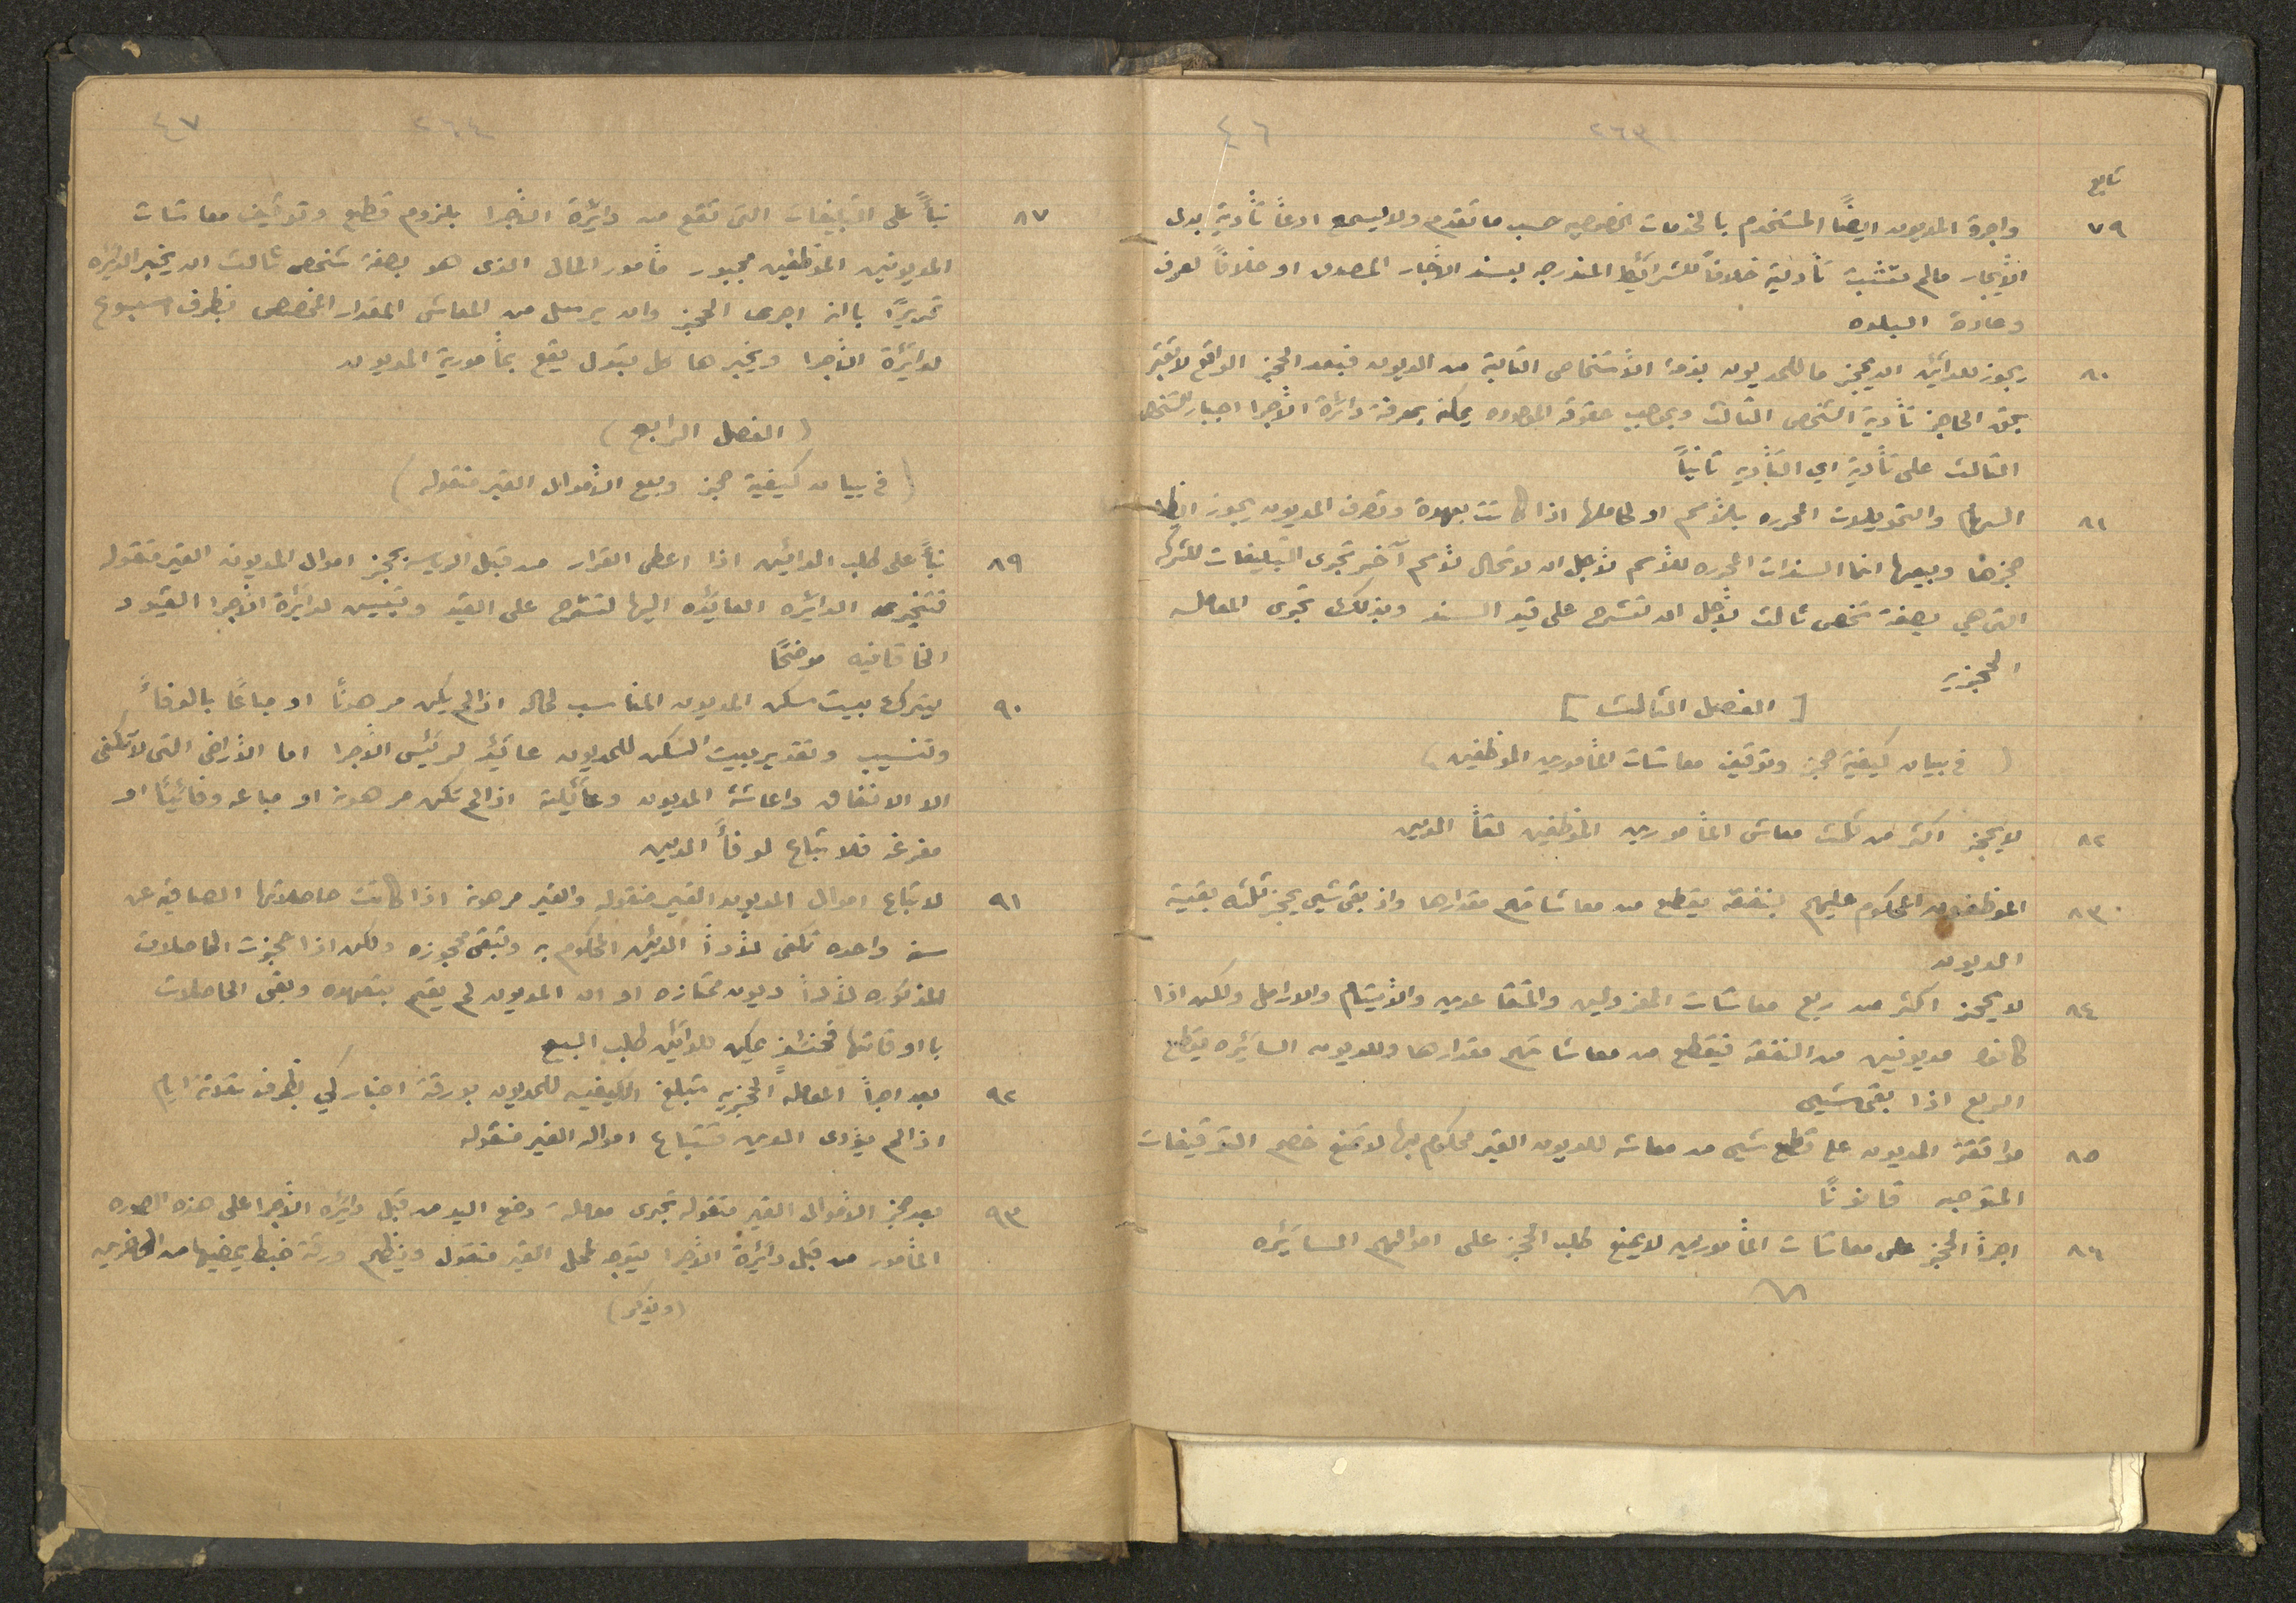 ٤٦ ٢٦٣
تابع
٧٩ واجرة المديون ايضاً المستخدم بالخدمات الخصوصيه حسب ما تقدم ولا يسمع ادعاً تأدية بدل
الأيجار مالم تثبت تأديته خلافاً للشرائيط المندرجه بسند الأيجار المصدق او خلافاً لعرف
وعادة البلده
٨٠ يجوز للدائين ان يحجز ما للمديون بذمة الأشخاص الثالثة من الديون فبعد الحجز الواقع لا تعتبر
بحق الحاجز تأدية الشخص الثالث وبموجب حقوقه الموجوده يمكنه بمعرفة دائرة الأجرا اجبار الشخص
الثالث على تأدية اي التأديه ثانياً
٨١ السهام والتحويلات المحرره بالأسم او لحاملها اذا كانت بعهدة وتصرف المديون يجوز ايضا
حجزها وبيعها انما السندات المحرره للأسم لأجل ان لا تحال لأسم آخر تجرى التبليغات للشركه
التي هي بصفة شخص ثالث لأجل ان تشرح على قيد السند وبذلك تجرى المعامله
الحجزيه
[ الفصل الثالث ]
( في بيان كيفية حجز وتوقيف معاشات المأمورين الموظفين )
٨٢ لا يحجز اكثر من ثلث معاش المأمورين الموظفين لقأ الدين
٨٣ الموظفون المحكوم عليهم بنفقه يقطع من معاشاتهم مقدارها واذ بقى شيى يحجز ثلثه بقية
الديون
٨٤ لا يحجز اكثر من ربع معاشات المعزولين والمتقاعدين والأيتام والارامل ولكن اذا
كانوا مديونين من النفقه فيقطع من معاشاتهم مقدارها وللديون السائيره يقطع
الربع اذا بقى شيى
٨٥ موافقة المديون على قطع شيى من معاشه للديون الغير محكوم بها لا تمنع خصم التوقيفات
المتوجبه قانوناً
٨٦ اجرأ الحجز على معاشات المأمورين لا يمنع طلب الحجز على اموالهم السائيره
٤٧ ٢٦٤
٨٧ بنأً على التبليغات التي تقع من دائيرة الأجرا بلزوم قطع وتوقيف معاشات
المديونين الموظفين مجبور مأمور المال الذى هو بصفة شخص ثالث ان يخبر الدائيره
تحريراً بانه اجرى الحجز وان يرسل من المعاش المقدار المخصص بظرف اسبوع
لدائيرة الأجرا ويخبرها كل تبدل يقع بمأمورية المديون
( الفصل الرابع )
( في بيان كيفية حجز وبيع الأموال الغير منقوله )
٨٩ بنأً على طلب الدائين اذا اعطى القرار من قبل الرياسه بحجز اموال المديون الغير منقوله
فتخبر الدائيره العائيده اليها لتشرح على القيد وتبين لدائيرة الأجرا القيود
الخاقانيه موضحاً
٩٠ يترك بيت سكن المديون المناسب لحاله اذا لم يكن مرهوناً او مباعاً بالوفاءً
وتنسيب وتقدير بيت السكن للمديون عائيد لرئيس الأجرا اما الأراضي التي لا تكفى
الا الانفاق واعاشة المديون وعائيلته اذا لم تكن مرهونه او مباعه وفائيياً او
مفرغه فلا تباع لوفأ الدين
٩١ لا تباع اموال المديون الغير منقوله والغير مرهونه اذا كانت حاصلاتها الصافيه عن
سنه واحده تكفى لأدأ الدين المحكوم به وتبقى محجوزه ولكن اذا حجزت الحاصلات
المذكوره لأدأ ديون ممتازه او ان المديون لم يقم بتعهده وبقى الحاصلات
باوقاتها فحينئذٍ يمكن للدائين طلب البيع
٩٢ بعد اجرأ المعاملة الحجزيه تبلغ الكيفيه للمديون بورقة اخبار كي بظرف ثلاثة ايام
اذا لم يؤدى الدين ستباع امواله الغير منقوله
٩٣ بعد حجز الأموال الغير منقوله تجرى معاملة وضع اليد من قبل دائيرة الأجرا على هذه الصوره
المأمور من قبل دائيرة الأجرا يتوجه لمحل الغير منقول وينظم ورقة ضبط يمضيها من الحاضرين
(ويذكر)